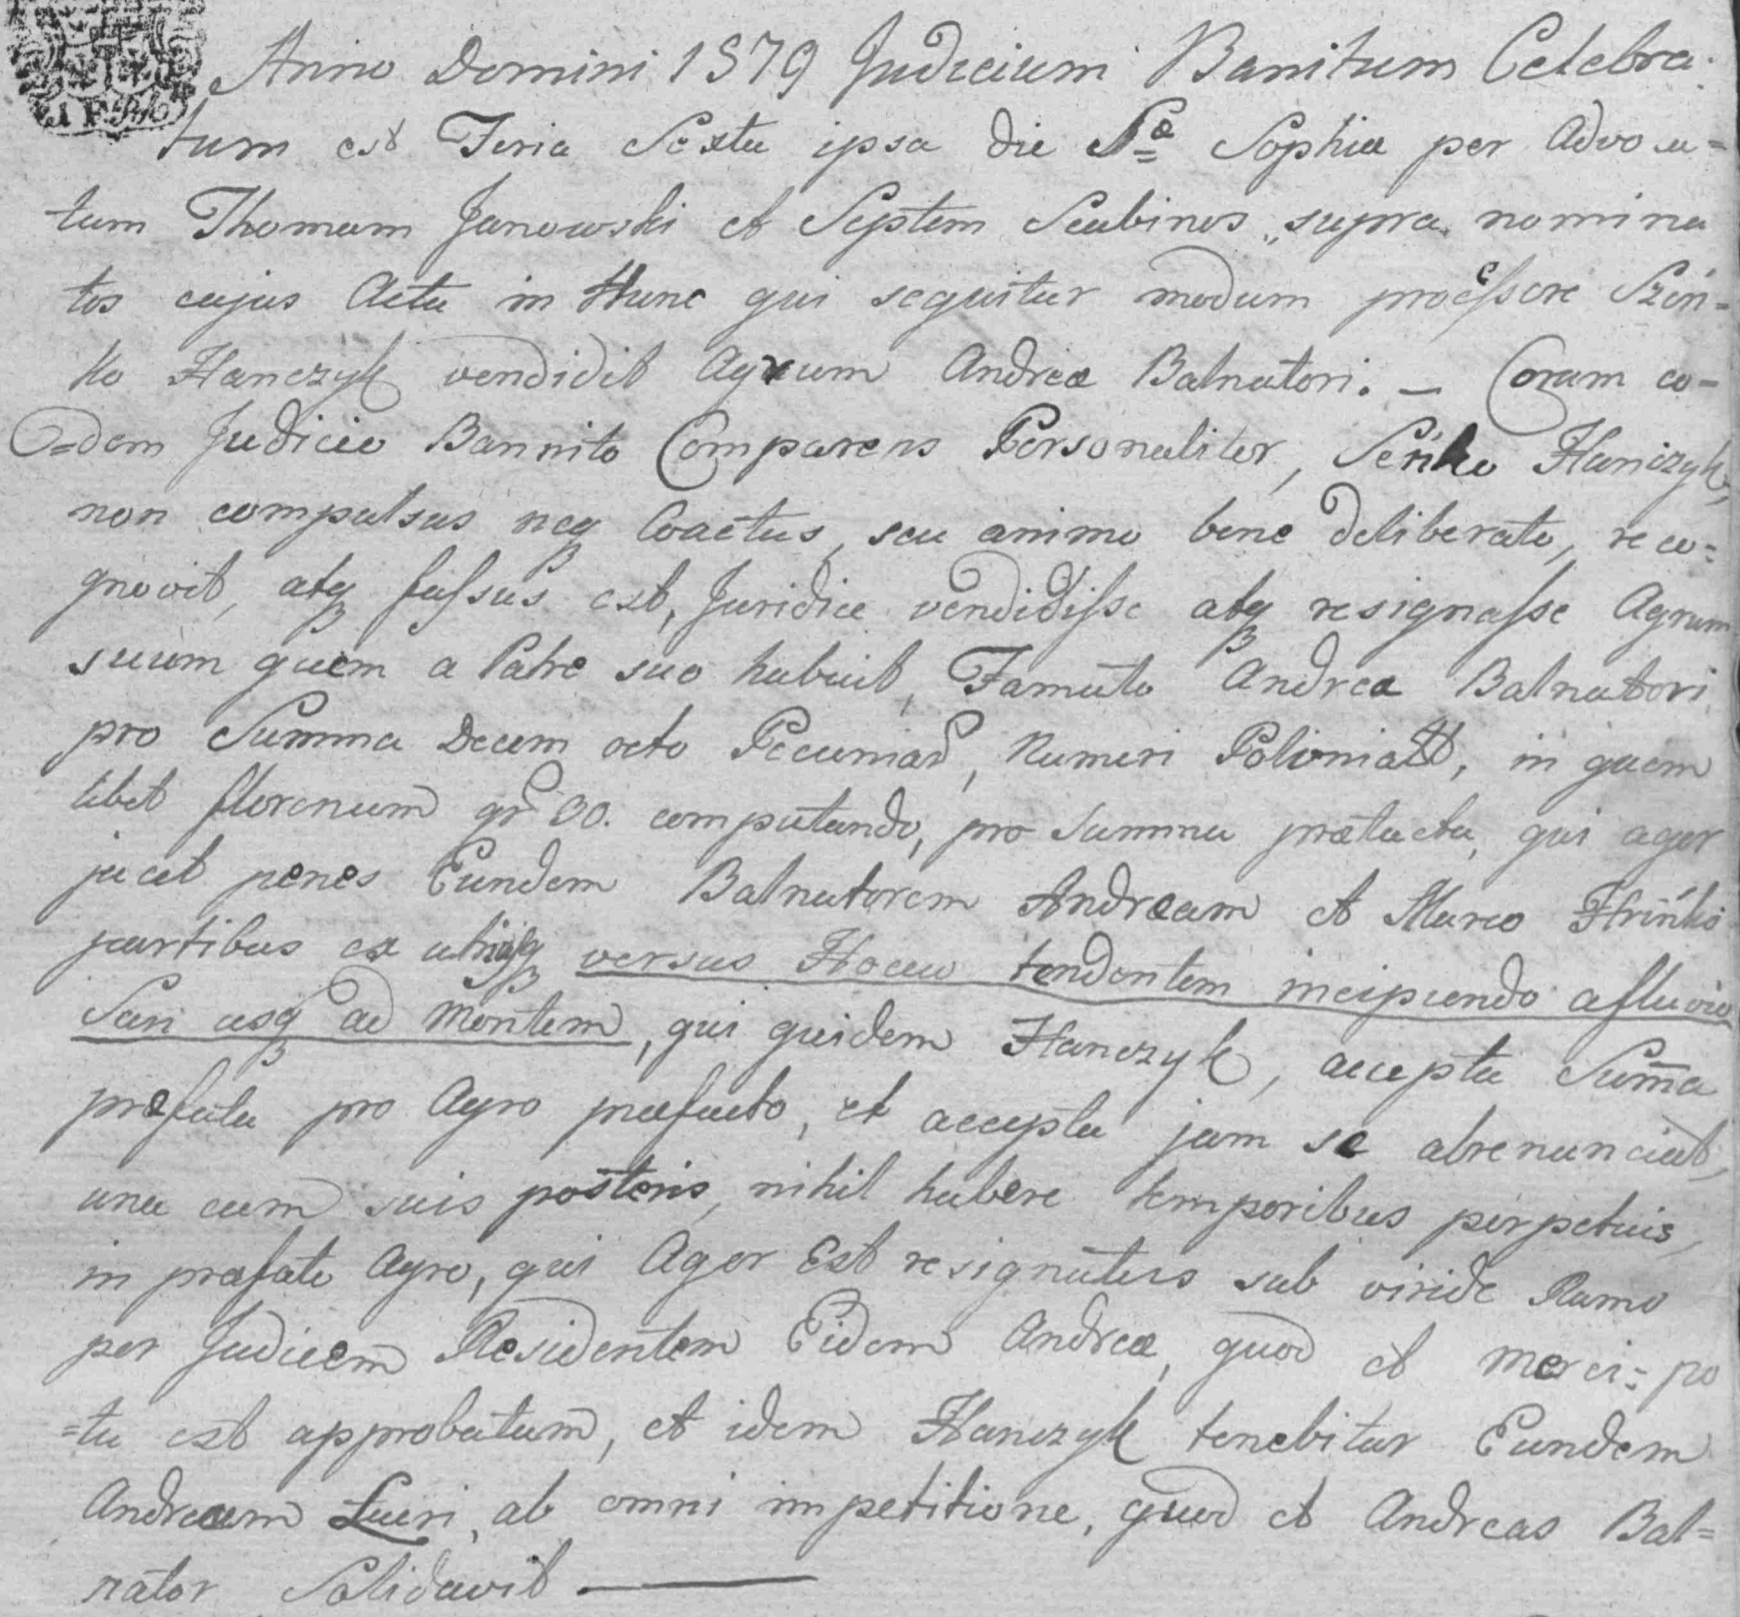 Anno Domini 1579 Judicium Banitum Celebra-
tum est Feria Sexta ipsa die Sæ Sophiæ per Advoca=
tum Thomam Janowski et Septem Scabinos „supra„ nomina
tos cujus Acta in Hunc qui sequitur modum processere Szeń=
ko Hanczyk vendidit Agrum Andreæ Balnatori. — Coram eo=
=dem Judicio Bannito Comparens Personaliter, Seńko Hanczyk,
non compulsus neq₃ Coactus, seu animo bene deliberato, reco=
gnovit, atq₃ fassus est, Juridice vendidisse atq₃ resignasse Agrum
suum quem a Patre suo habuit, Famato Andreæ Balnatori
pro Summa Decem octo Pecuniar, Numeri Polonia, in quem
libet florenum gr 30. computando, pro summa prætacta, qui ager
jacet penes Eundem Balnatorem Andream et Marco Hrińko
partibus ex utrisq₃ versus Hoczew tendentem incipiendo a fluvio
San usq₃ ad Montem, qui quidem Hanczyk, accepta Summa
præfata pro Agro præfato, et accepta jam se abrenunciat,
una cum suis posteris, nihil habere temporibus perpetuis,
in præfato Agro, qui Ager Est resignatus sub viride Ramo
per Judicem Residentem Eidem Andreæ, quod et merci=po
=tu est approbatum, et idem Hanczyk tenebitur Eundem
Andream Tueri, ab omni impetitione, quod et Andreas Bal=
nator Solidavit —